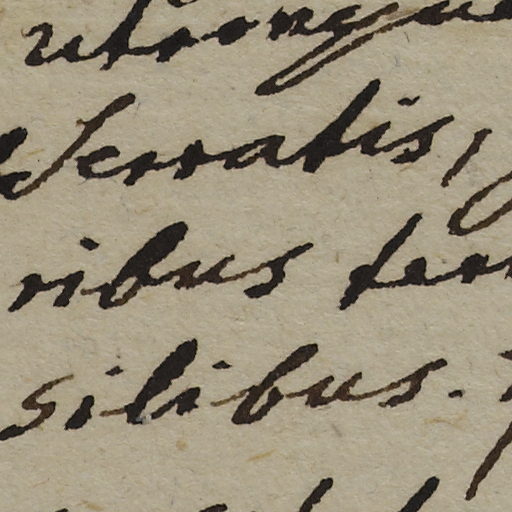 utrinque
Serratis,
ribus ter
silibus.